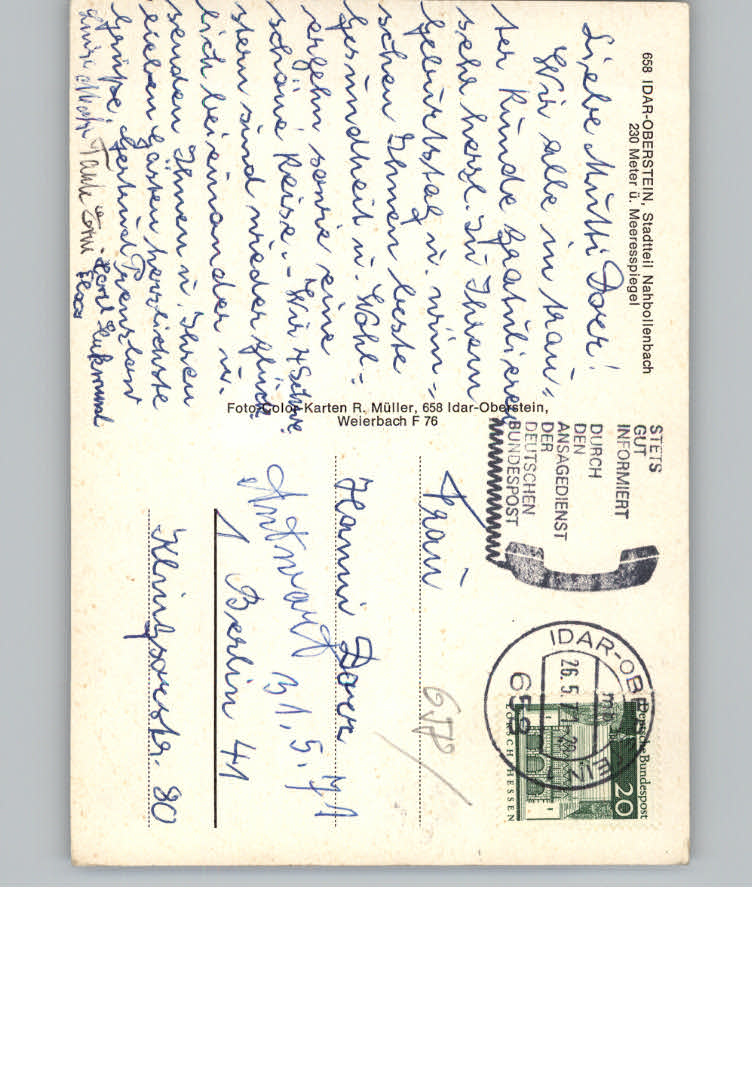 658 IDAR-OBERSTEIN, Stadtteil Nahbollenbach
230 Meter ü. Meeresspiegel
Liebe Mutti Dorr!
Wir alle in trau-
ter Runde gratulieren
sehr herzl. zu Ihrem
Geburtstag u. wün-
schen Ihnen beste
Gesundheit u. Wohl-
ergehn sowie eine
schöne Reise. - Wir 4 Schwe-
stern sind wieder glück-
lich beieinander u.
senden Ihnen u. Ihren
lieben Gästen herzlichste
Grüße, Gertrud
Tante
Foto-Color-Karten R. Müller, 658 Idar-Oberstein,
Weierbach F 76
STETS
GUT
INFORMIERT
DURCH
DEN
ANSAGEDIENST
DER
DEUTSCHEN
BUNDESPOST
IDAR-OBERSTEIN
26.5.71
658
Deutsche Bundespost
20
LORSCH/HESSEN
Frau
Hanni Dorr
Antwort 31.5.71
1 Berlin 41
Klingsorstr. 80